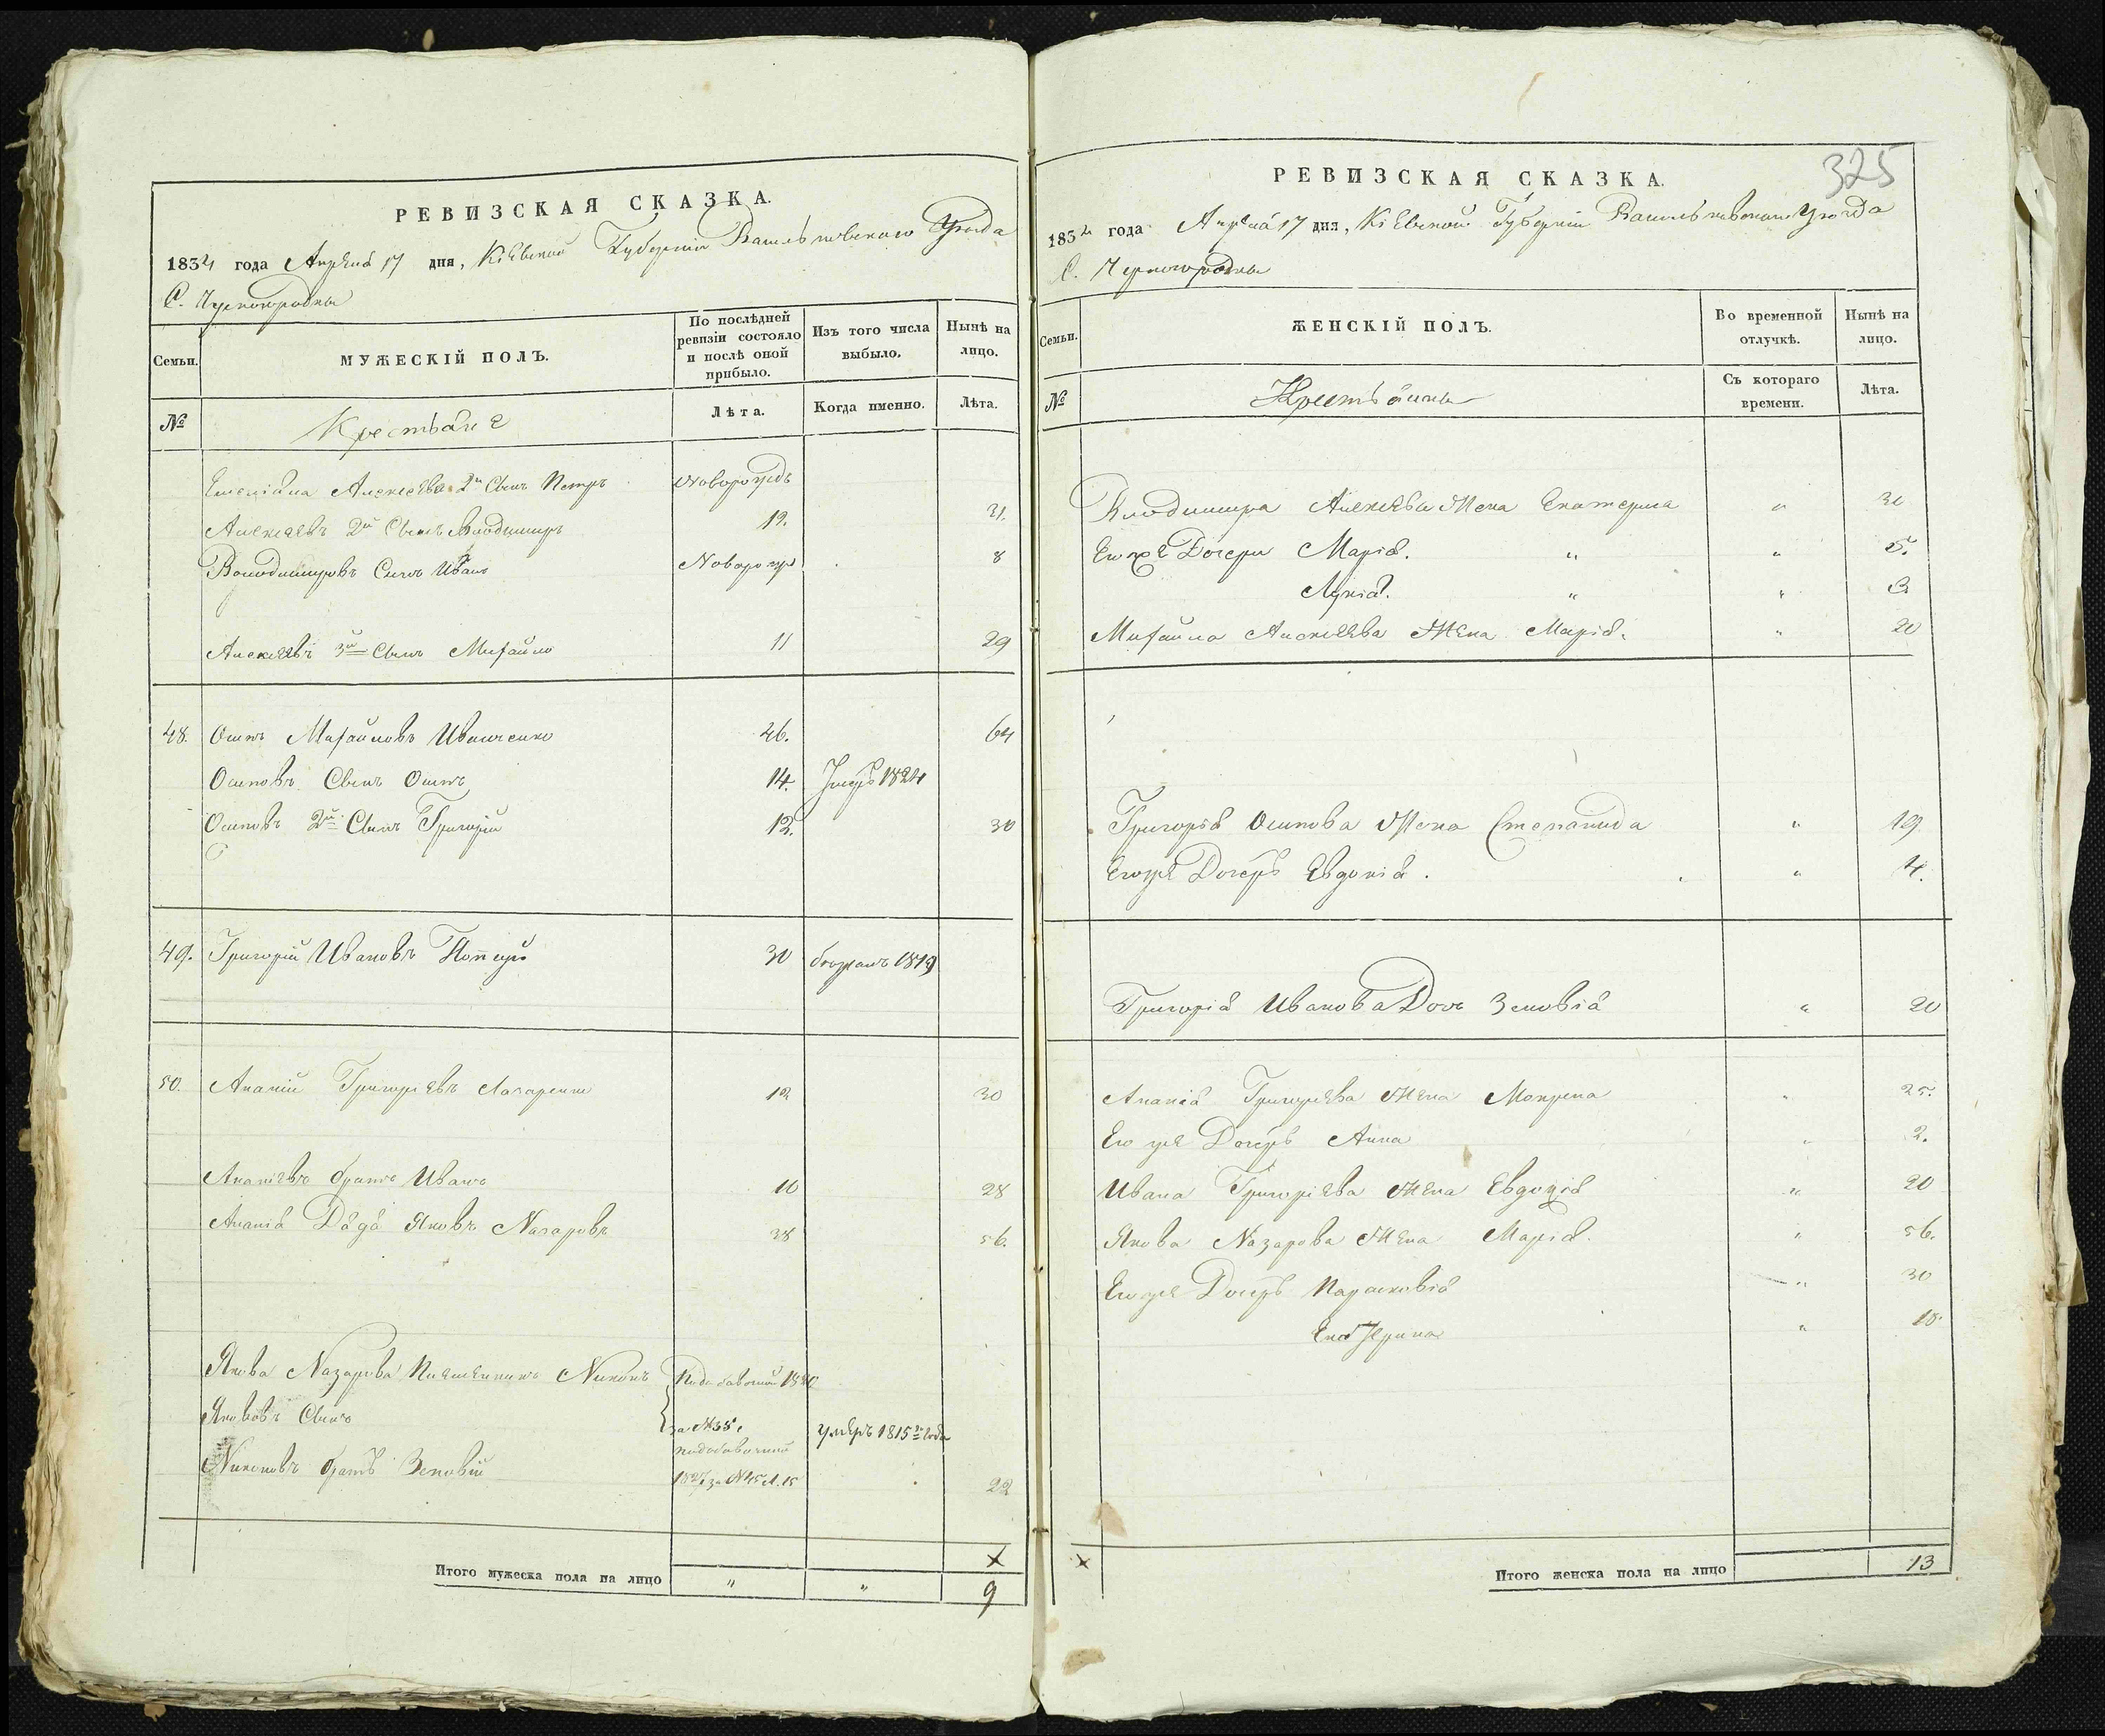 РЕВИЗСКАЯ СКАЗКА.
1834 года Апреля 17 дня, Кіевской Губерніи Васильковскаго Уезда
С. Черногородки
Семьи.
МУЖЕСКІЙ ПОЛЪ.
По послѣдней ревизіи состояло и послѣ оной прибыло.
Изъ того числа выбыло.
Нынѣ на лицо.
№
Крестьяне
Лѣта.
Когда именно.
Лѣта.
Алексеева 2й Сынъ Петръ новорожд
Алексеевъ 2й Сынъ Володимиръ 19. 31.
Володимировъ Сынъ Иванъ Новорожд 8
Алексеевъ 3й Сынъ Михайло 11 29
48. Осипъ Михайловъ Иванченко 46. 64
Осиповъ Сынъ Осипъ 14. Умеръ 1824
Осиповъ 2й Сынъ Григорій 12. 30
49. Григорій Ивановъ 30 1819
50. Ананій Григорьевъ Лазаренко 12 30
Ананіевъ братъ Иванъ 10 28
Ананія Дядя Яковъ Назаровъ 38 56.
Якова Назарова Племенникъ Никонъ
Яковъ Сынъ за №35 умеръ 1815го года
Никоновъ братъ Зеновій 22
Итого мужеска пола на лицо " " 9
РЕВИЗСКАЯ СКАЗКА.
325
1834 года Апреля 17 дня, Кіевской Губерніи Васильковскаго Уезда
С. Черногородки
Семьи.
ЖЕНСКІЙ ПОЛЪ.
Во временной отлучкѣ.
Нынѣ на лицо.
№
Крестьянки
Съ котораго времени.
Лѣта.
Володимира Алексеева Жена Екатерина " 30
Его же Дочери Марія. " " 5.
Лукія. " " 3
Михайла Алексеева Жена Марія. " 20
Григорія Осипова Жена Степанида " 19.
Его же Дочерь Евдокія. " 4.
Григорія Иванова Доч Зеновія " 20
Ананія Григорьева Жена Мокрена " 25.
Его же Дочерь Анна " 2.
Ивана Григоріева Жена Евдокія " 20
Якова Назарова Жена Марія. " 56.
Его же Дочерь Парасковія " 30
Екатерина " 18.
Итого женска пола на лицо 13